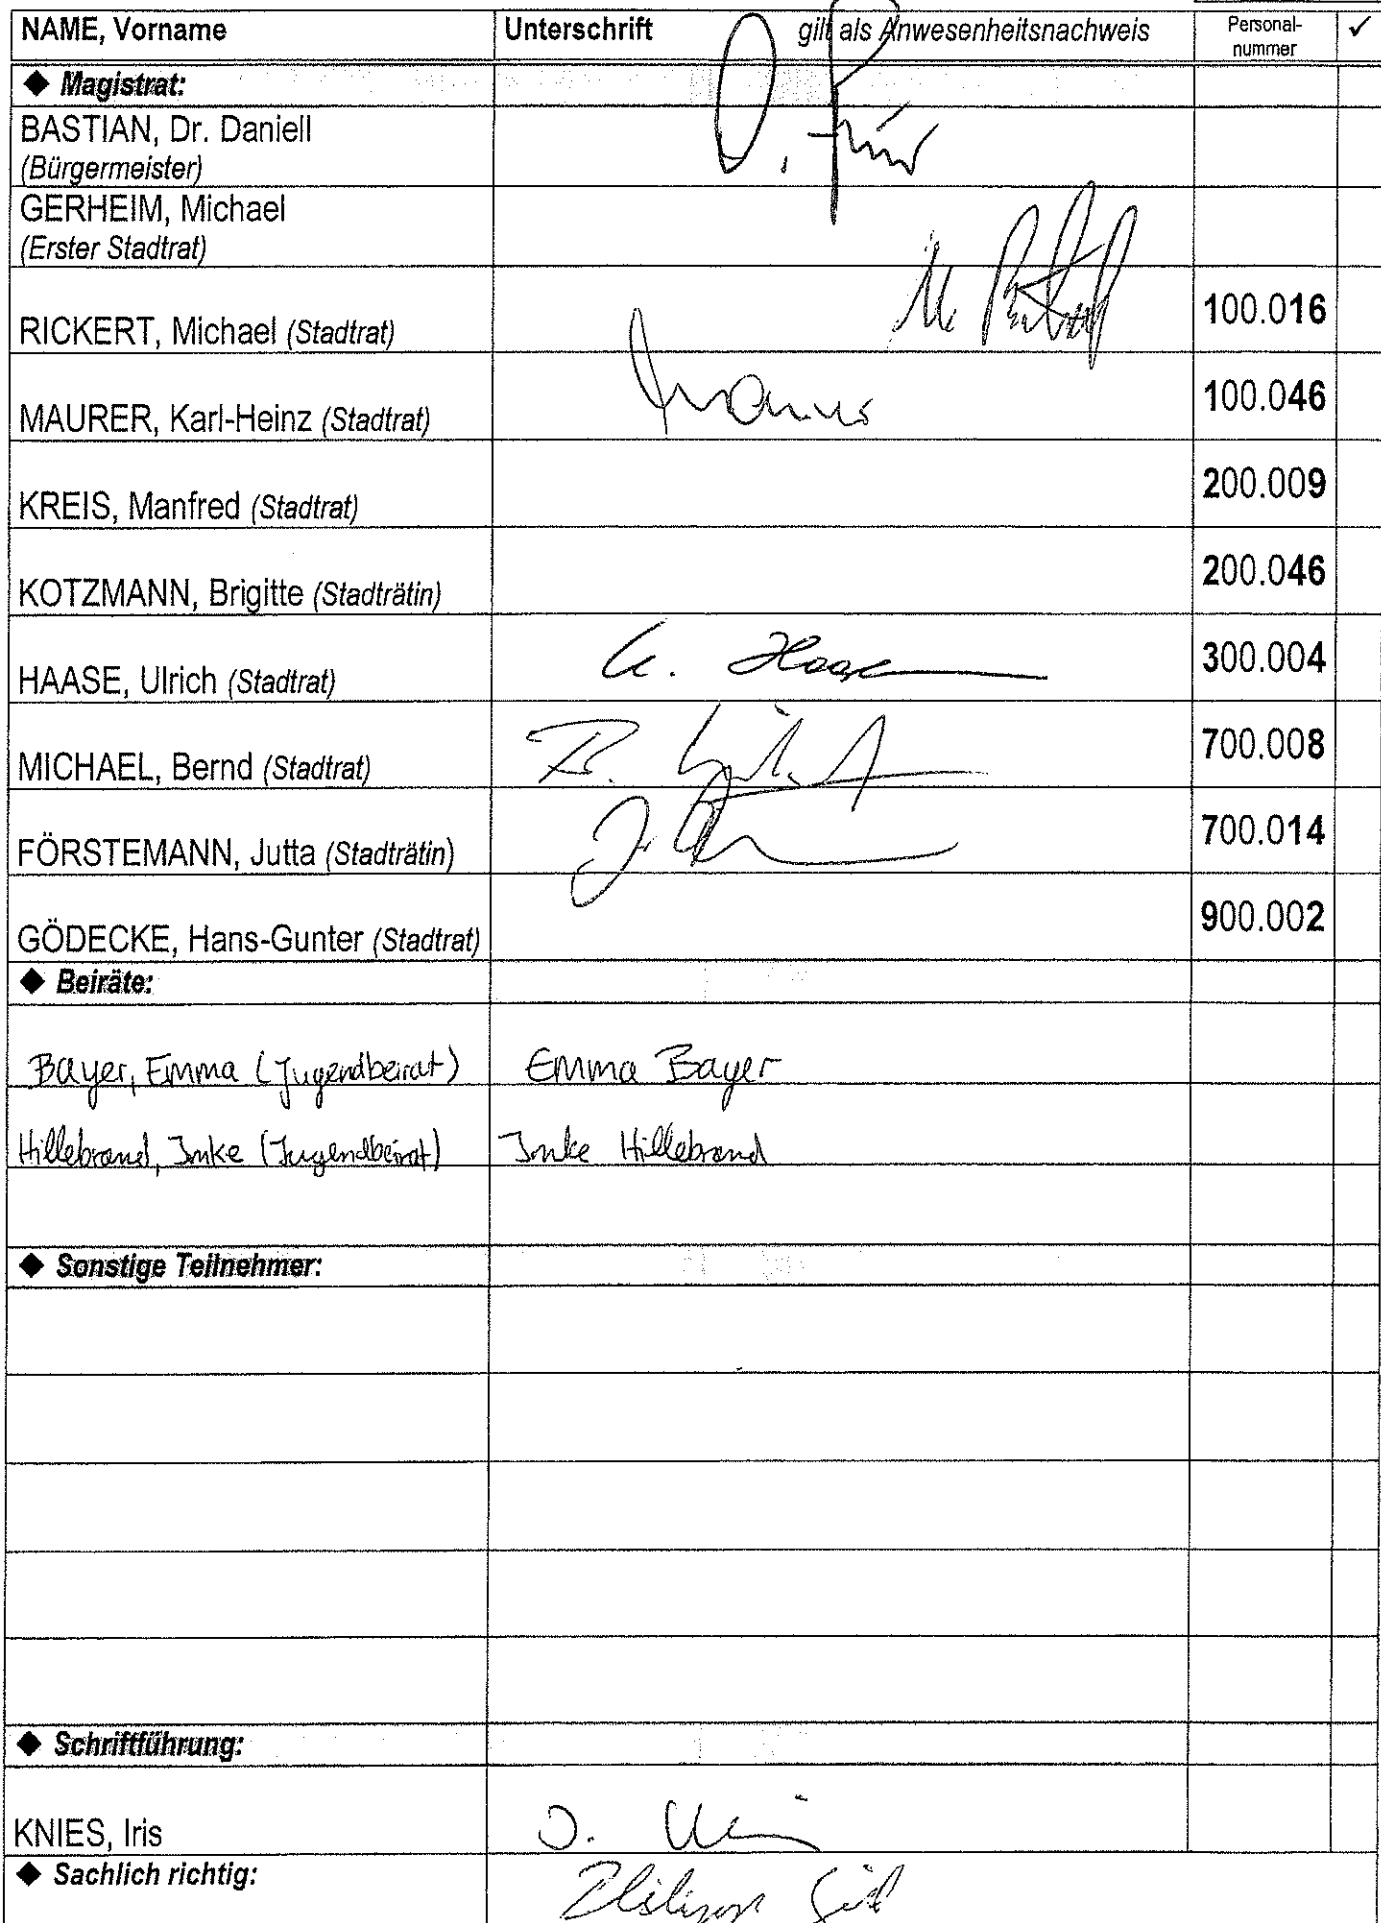 NAME, Vorname Unterschrift gilt als Anwesenheitsnachweis Personal-nummer ✓
◆ Magistrat:
BASTIAN, Dr. Daniell
(Bürgermeister)
GERHEIM, Michael
(Erster Stadtrat)
RICKERT, Michael (Stadtrat) 100.016
MAURER, Karl-Heinz (Stadtrat) 100.046
KREIS, Manfred (Stadtrat) 200.009
KOTZMANN, Brigitte (Stadträtin) 200.046
HAASE, Ulrich (Stadtrat) U. Haase 300.004
MICHAEL, Bernd (Stadtrat) 700.008
FÖRSTEMANN, Jutta (Stadträtin) 700.014
GÖDECKE, Hans-Gunter (Stadtrat) 900.002
◆ Beiräte:
Bayer, Emma (Jugendbeirat) Emma Bayer
Hillebrand, Imke (Jugendbeirat) Imke Hillebrand
◆ Sonstige Teilnehmer:
◆ Schriftführung:
KNIES, Iris
◆ Sachlich richtig: